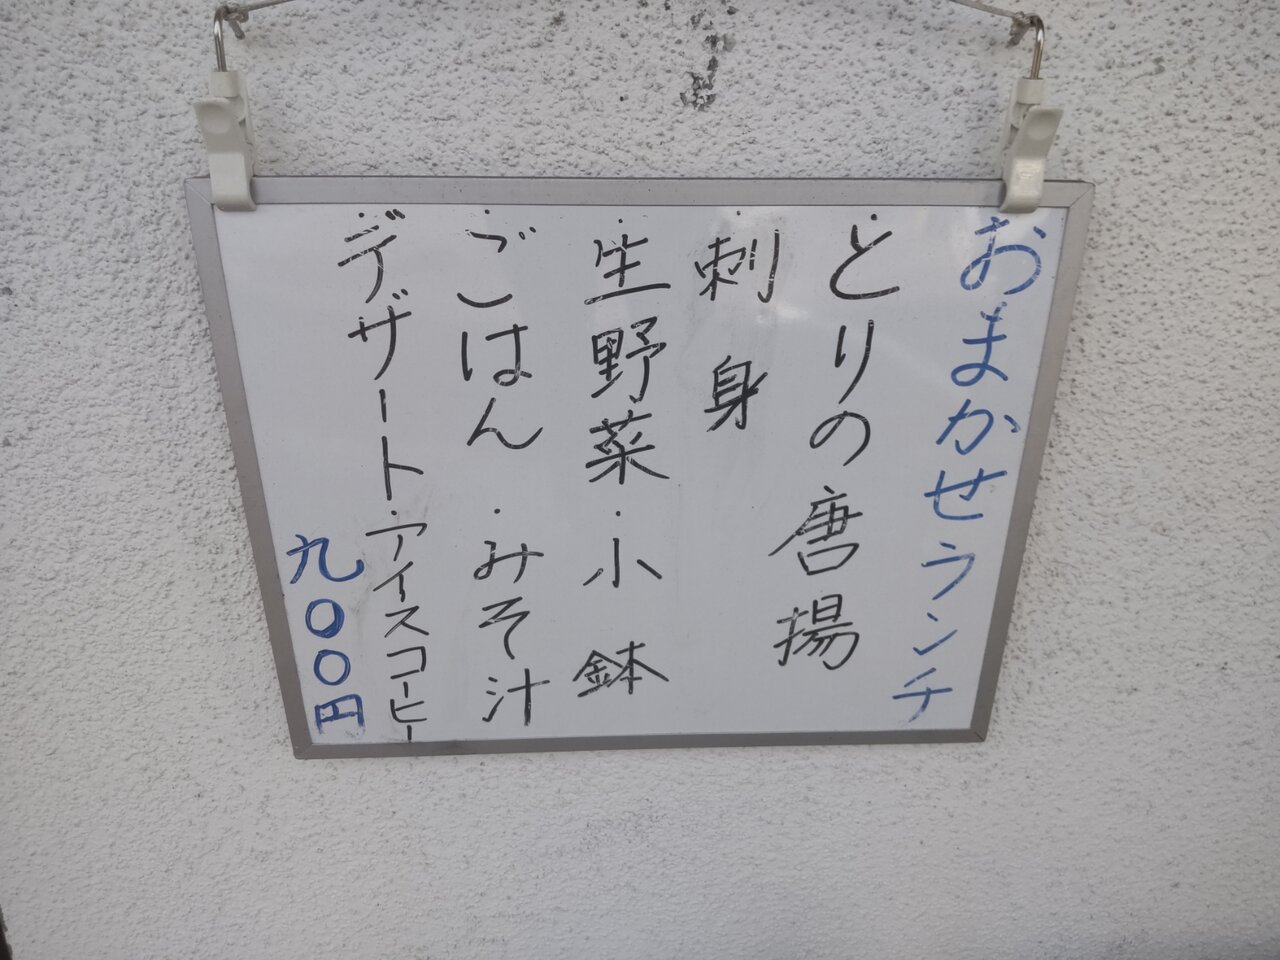 おまかせランチ
・とりの唐揚
・刺身
・生野菜・小鉢
・ごはん・みそ汁
・デザート・アイスコーヒー
九〇〇円